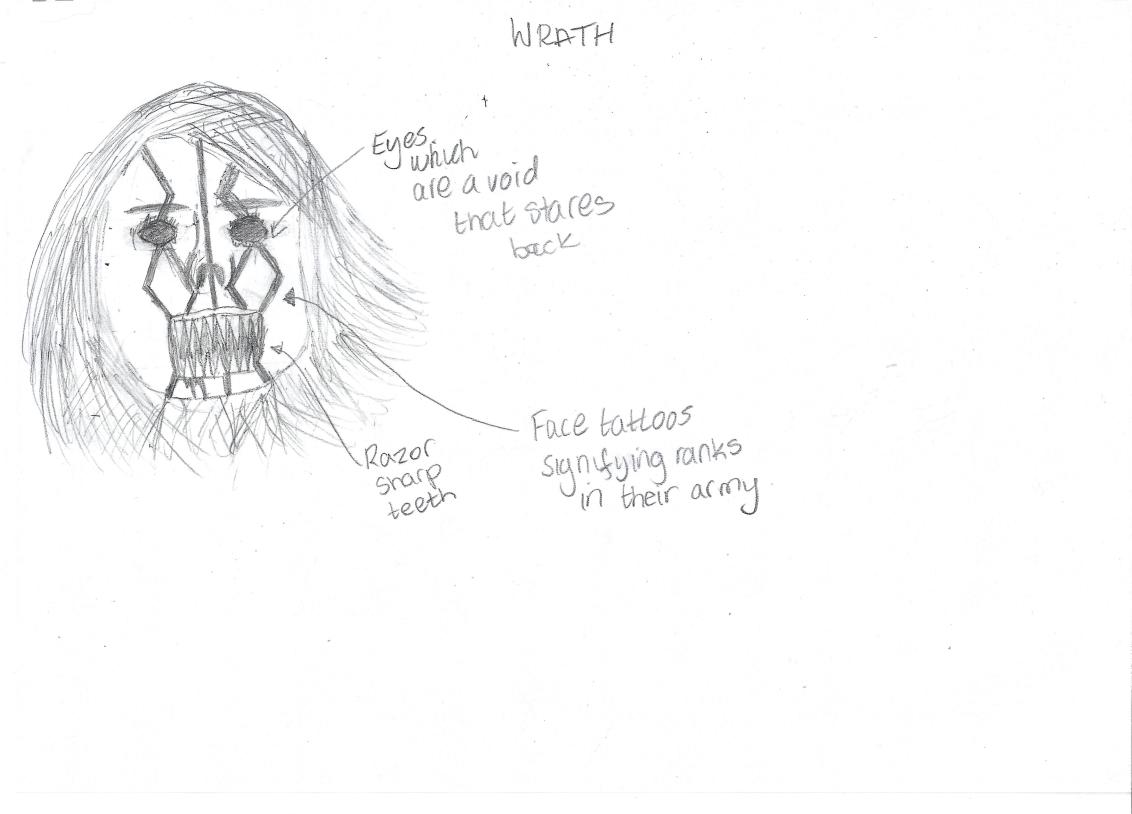 WRATH
Eyes
which
are a void
that stares
back
Face tattoos
signifying ranks
in their army
Razor
sharp
teeth